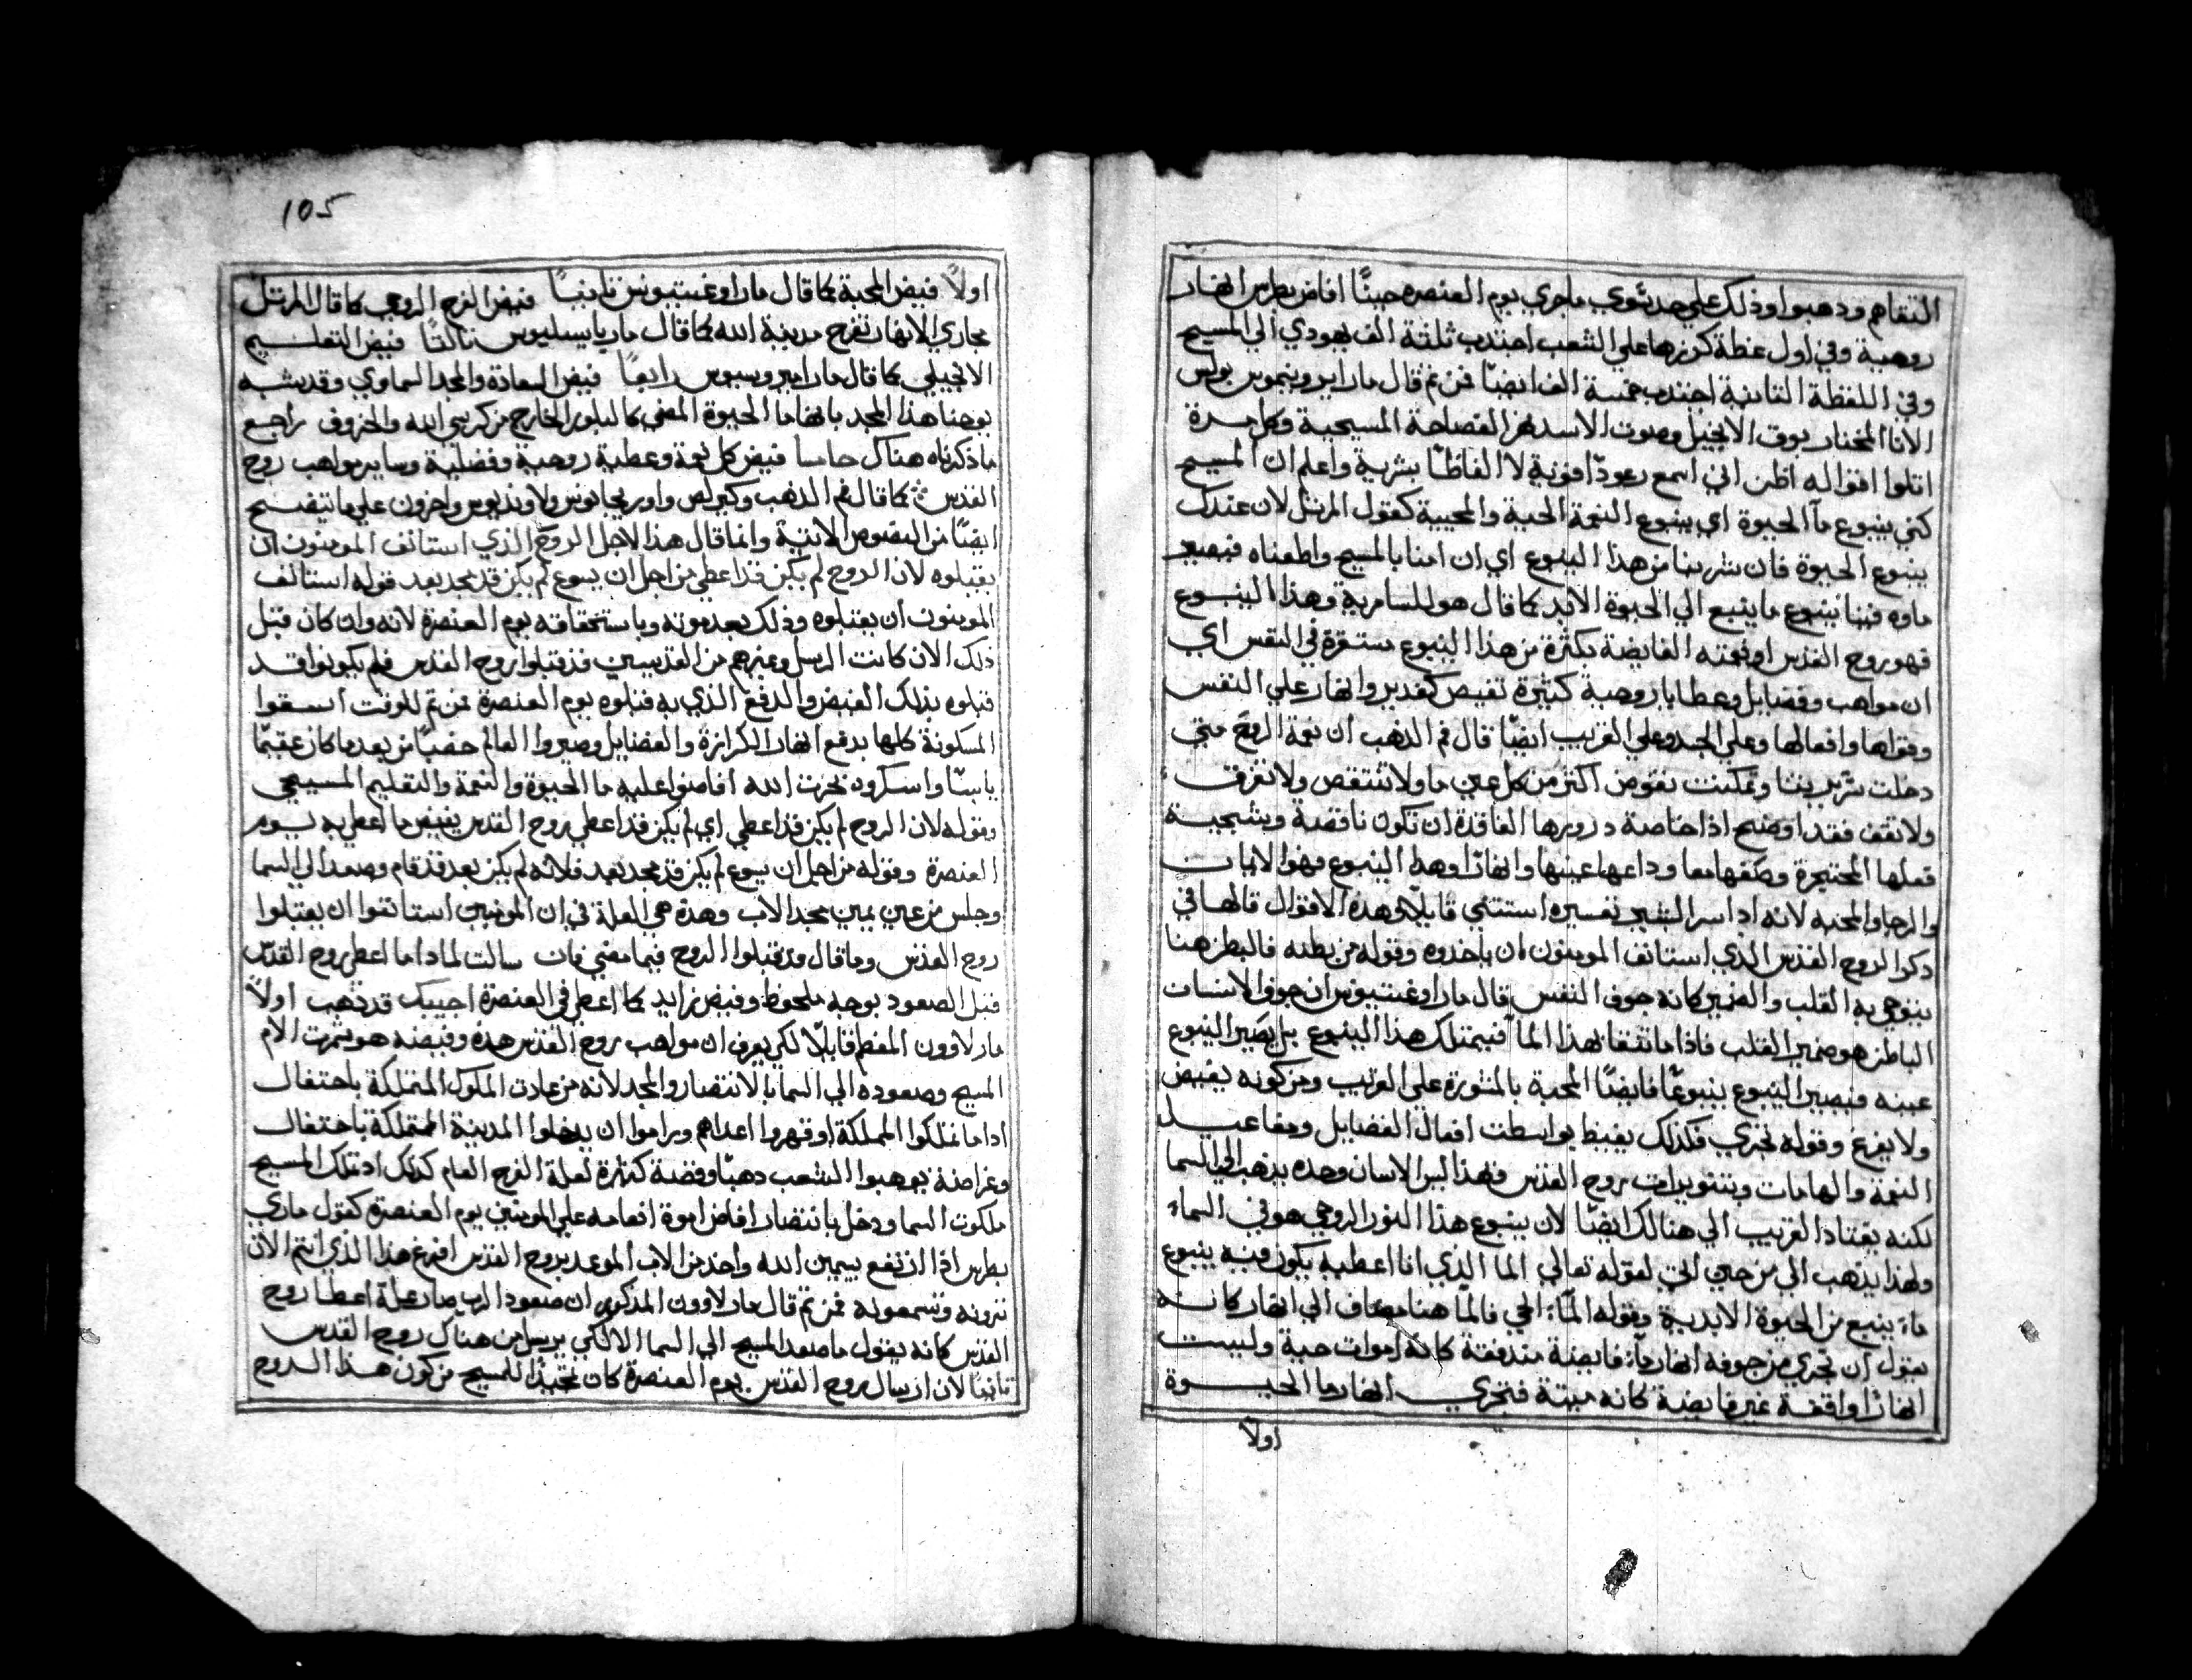 التقاهم ودهبوا وذلك علي حد سوي ماجري يوم العنصره حينًا افاض بطرس انهار
روحية وفي اول عظة كرزها علي الشعب اجتدب ثلثة الف يهودي الي المسيح
وفي اللفظة التانية اجتدب خمسة الف ايضًا فمن تم قال مار ايرونيموس بولس
الانا المختار بوق الانجيل وصوت الاسد نهر الفصاحة المسيحية وكل مرة
اتلوا اقواله اظن اني اسمع رعودًا قوية لا الفاظًا بشرية واعلم ان المسيح
كني ينبوع مآ الحيوة اي ينبوع النعمة الحية والمحيية كقول المرتل لان عندك
ينبوع الحيوة فان شربنا من هذا الينبوع اي ان امنا بالمسيح واطعناه فيصير
ماوه فينا ينبوع ما ينبع الي الحيوة الابد كما قال هو للسامرية وهذا الينبوع
فهو روح القدس او نعمته الفايضة بكثرة من هذا الينبوع مستقرة في النفس اي
ان مواهب وفضايل وعطايا روحية كثيرة تفيض كغدير وانهار علي النفس
وقواها وافعالها وعلي الجسد وعلي القريب ايضًا قال فم الدهب ان نعمة الروح متي
دخلت سريرتنا وتمكنت تفوض اكتر من كل عين ما ولا تنتقص ولا تفرغ
ولا تقف فقد اوضح اذا خاصة
والرجا والمحبه لانه اد اسر الشبح تفسيره استتني قايلًا وهذه الاقوال قالها في
دكر الروح القدس الذي استانف المومنون ان ياخدوه وقوله من بطنه فالبطن هنا
ينوي به القلب والضمير كانه جوف النفس قال مار اوغستينوس ان جوف الانسان
الباطن هو ضمير القلب فاذا ما تسقا بهذا المآ فيمتلك هذا الينبوع بل يصير الينبوع
عينه فيصير الينبوع ينبوعًا فايضًا المحبة بالمشورة علي القريب ومن كونه يفيض
ولا يفرغ وقوله تجري فكذلك يفيض بواسطت افعال الفضايل ومفاعيل
النعمة والهامات وتنويرات روح القدس فهذا ليس الانسان وحده يذهب الي السما
لكنه يقتاد القريب الي هنالك ايضًا لان ينبوع هذا النور الروحي هو في السماء
ولهذا يذهب الي من حيث اتي لقوله تعالي الما الذي انا اعطيه يكون فيه ينبوع
ماء ينبع من الحيوة الابدية وقوله المآء الحي فالمآ هنا مضاف الي انهار كانه
يقول ان تجري من جوفه انهار مآء فايضة مندفقة كانه امواه حية وليست
انهارًا واقفة غير فايضة كانه ميتة فتجري انهار ما الحيوة
اولًا
105
اولًا فيض المحبة كما قال مار اوغستينوس تانيًا فيض الفرح الروحي كما قال المرتل
مجاري الانهار تفرح مدينة الله كما قال مار باسيليوس تالتًا فيض التعليم
الانجيلي كما قال مار امبروسيوس رابعًا فيض السعادة والمجد السماوي وقد يشبه
يوحنا هذا المجد بانها ما الحيوة المضي كالبلور الخارج من كرسي الله والخروف راجع
ما ذكرناه هناك خامسا فيض كل نعمة وعطية روحية وفضلية وساير مواهب روح
القدس كما قال فم الدهب وكيرلس واوريجانوس ولاونديوس واخرون علي ما يتضح
ايضًا من النصوص الاتية وانما قال هذا لاجل الروح الذي استانف المومنون ان
يقبلوه لان الروح لم يكن قد اعطي من اجل ان يسوع لم يكن قد مجد بعد قوله استانف
المومنون ان يقبلوه وذلك بعد موته وباستحقاقه يوم العنصرة لانه وان كان قبل
ذلك الان كانت الرسل وغيرهم من القديسين قد قبلوا روح القدس فلم يكونوا قد
قبلوه بذلك الفيض والدفع الذي به قبلوه يوم العنصرة فمن تم للوقت اسقوا
المسكونة كلها بدفع انهار الكرازة والفضايل وصيروا العالم خصبًا من بعد ما كان عقيمًا
يابسًا واسكروه بحرت الله افاضوا عليه ما الحيوة والنعمة والتعليم المسيحي
وقوله لان الروح لم يكن قد اعطي اي لم يكن قد اعطي روح القدس بفيض ما اعطي به يوم
العنصرة وقوله من اجل ان يسوع لم يكن قد مجد بعد فلانه لم يكن بعد قد قام وصعد الي السما
وجلس من عين يمين مجد الاب وهذه هي العلة في ان المومنين استانفوا ان يقبلوا
روح القدس وما قال قد قبلوا الروح فيما مضي فان سالت لمادا ما اعطي روح القدس
قبل الصعود بوجه ملحوظ وفيض زايد كما اعطي في العنصرة اجيبك قد ذهب اولًا
مار لاوون المعظم قايلًا لكي يعرف ان مواهب روح القدس هذه وفيضه هو تمرت الام
المسيح وصعوده الي السما بالانتصار والمجد لانه من عادت الملوك المتملكة باحتفال
ادا ما تملكوا المملكة او قهروا اعداهم وراموا ان يدخلوا المدينة المتملكة باحتفال
وغراضة يوهبوا الشعب دهبًا وفضة كتيرة لعلة الفرح العام كذلك اد تملك المسيح
ملكوت السما ودخل بانتصار افاض اموة انعامه علي المومنين يوم العنصرة كقول ماري
بطرس اذا ارتفع بيمين الله واخد من الاب الموعد بروح القدس افرغ هذا الذي انتم الان
ترونه وتسمعونه فمن تم قال مار لاوون المذكور ان صعود الرب صار علة اعطا روح
القدس كانه يقول ما صعد المسيح الي السما الا لكي يرسل من هناك روح القدس
تانيًا لان ارسال روح القدس يوم العنصرة كان تمجيدًا للمسيح من كون هذا الروح